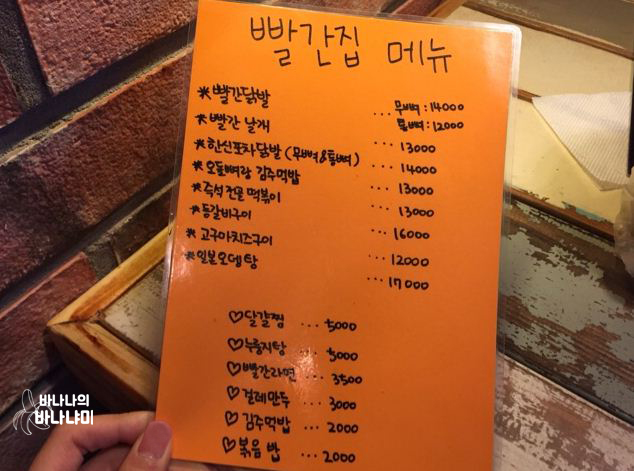 빨간집 메뉴
*빨간닭발 ... 무뼈:14000
통뼈:12000
*빨간 날개 ... 13000
*한신포차닭발 (무뼈&통뼈) ... 14000
*오돌뼈랑 김주먹밥 ... 13000
*즉석 전골 떡볶이 ... 13000
*등갈비구이 ... 16000
*고구마치즈구이 ... 12000
*일본오뎅탕 ... 17000
♡달걀찜 ... 5000
♡누룽지탕 ... 5000
♡빨간라면 ... 3500
♡걸레만두 ... 3000
♡김주먹밥 ... 2000
♡볶음 밥 ... 2000
바나나의
바나냐미